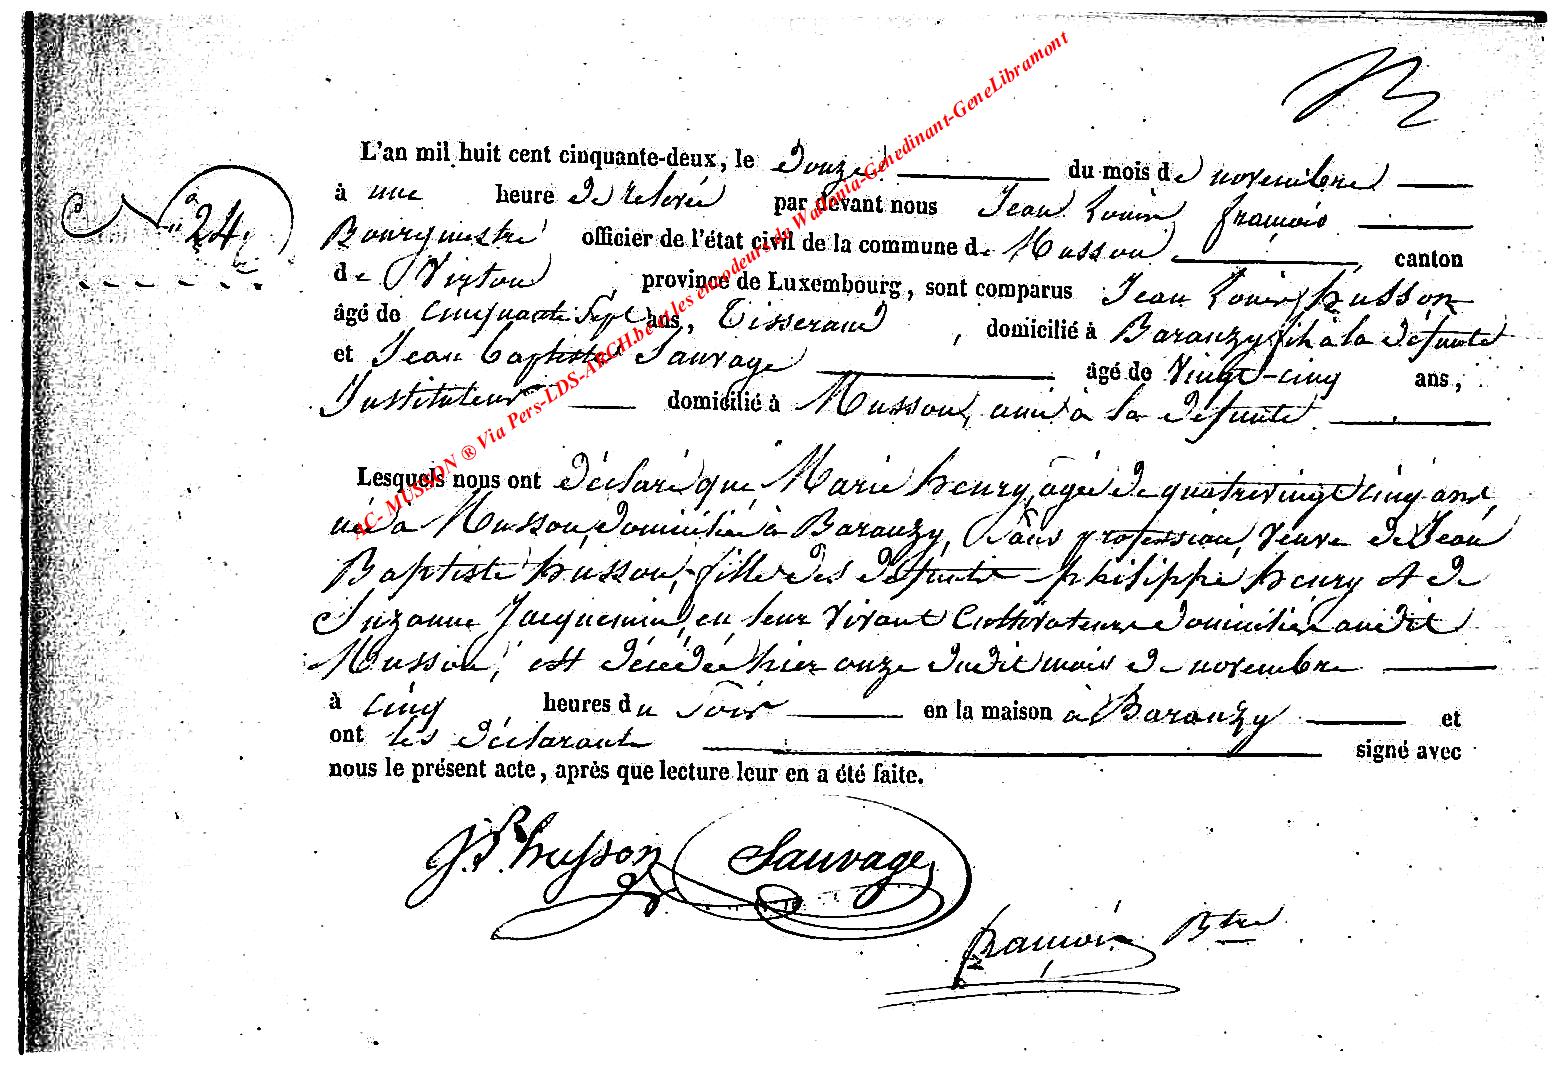 L'an mil huit cent cinquante-deux, le Douze du mois de novembre
N° 24. à une heure de relevée par devant nous Jean Louis françois
Bourgmestre officier de l'état civil de la commune de Musson, canton
de Virton, province de Luxembourg, sont comparus Jean Louis husson
âgé de cinquante Sept ans, Tisserand, domicilié à Baranzy fils à la défunte
et Jean Baptiste Sauvage âgé de Vingt-cinq ans,
Instituteur domicilié à Musson, ami à la défunte
Lesquels nous ont déclaré que, Marie henry, agée de quatrevingt cinq ans,
née à Musson, domiciliée à Baranzy, Sans profession, Veuve de Jean
Baptiste husson, fille des défunts philippe henry et de
Suzanne Jacquemin, en leur vivant Cultivateurs domiciliés audit
Musson, est décédée hier onze dudit mois de novembre
à cinq heures du Soir en la maison à Baranzy et
ont les déclarants signé avec
nous le présent acte, après que lecture leur en a été faite.
husson Sauvage
françois Btre
AC- MUSSON ® Via Pers-LDS-ARCH.be et les encodeurs de Wallonia-Genedinant-GeneLibramont